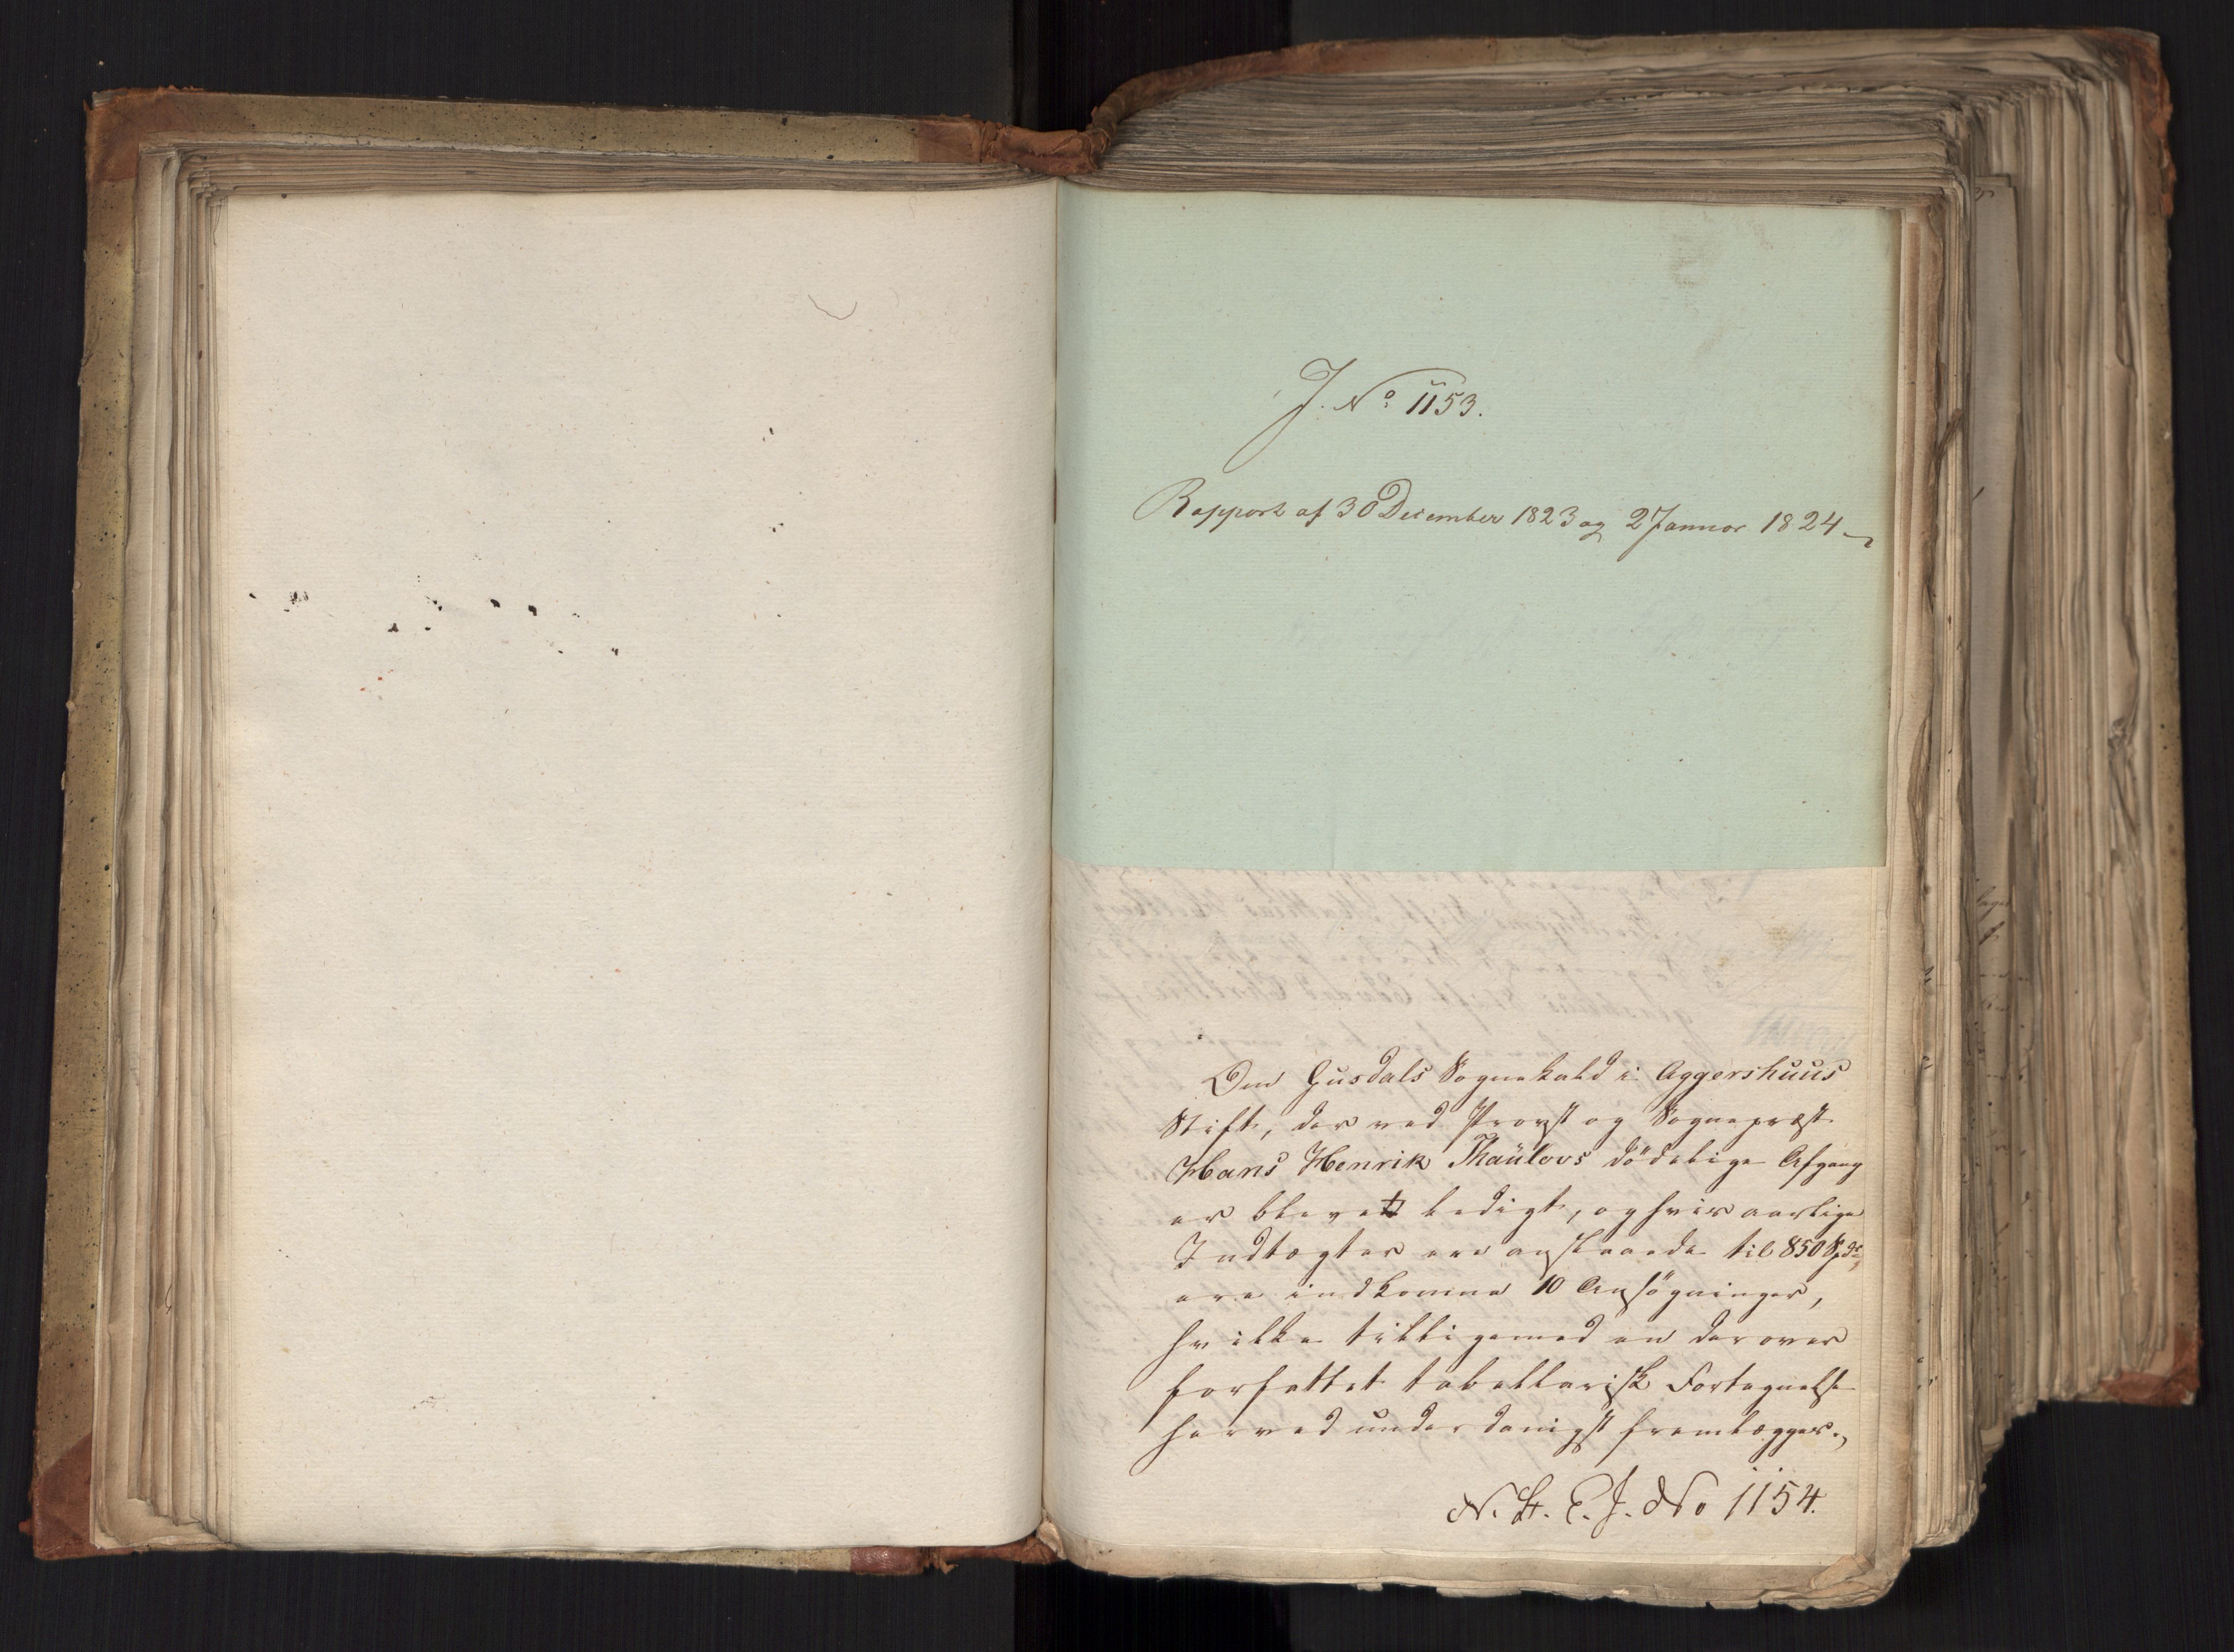 J. No 1153.
Rapport af 30 December 1823 og 2 Januar 1824
Om Gusdals Sognekald i Aggershuus
Stift, der ved Provst og Sognepræst
Hans Henrik Thaülovs dödelige Afgang
er blevet ledigt, og hvis aarlige
Indtægter ere anslaaede til 850 Spdr,
ere indkomne 10 Ansögninger,
hvilke tilligemed en derover
forfattet tabellarisk Fortegnelse
herved underdanigst fremlægges.
N. St. E. J. No 1154.